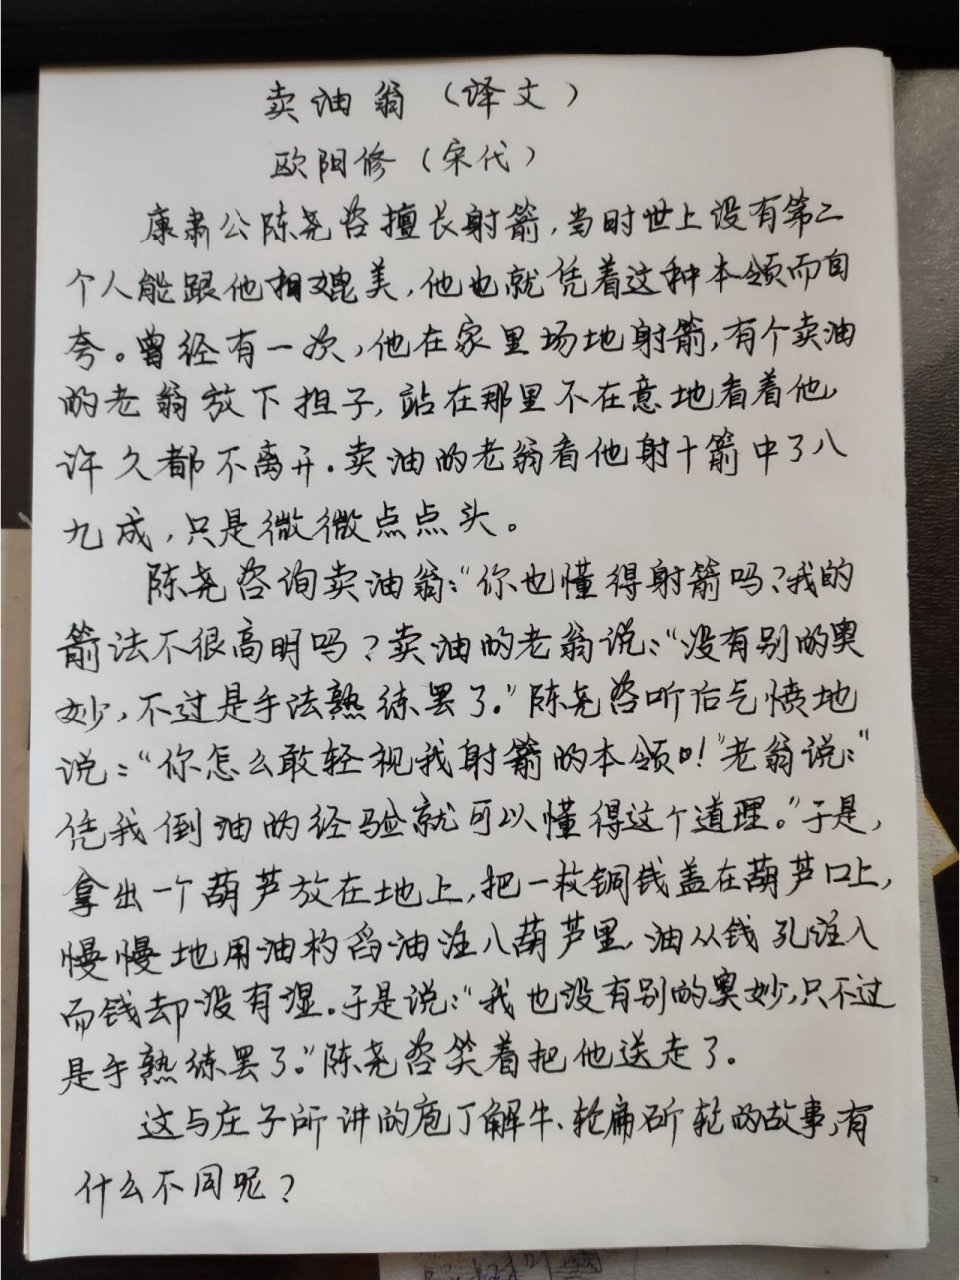 卖油翁（译文）
欧阳修（宋代）
康肃公陈尧咨擅长射箭，当时世上没有第二
个人能跟他相媲美，他也就凭着这种本领而自
夸。曾经有一次，他在家里场地射箭，有个卖油
的老翁放下担子，站在那里不在意地看着他，
许久都不离开。卖油的老翁看他射十箭中了八
九成，只是微微点点头。
陈尧咨询卖油翁：“你也懂得射箭吗？我的
箭法不很高明吗？卖油的老翁说：“没有别的奥
妙，不过是手法熟练罢了。”陈尧咨听后气愤地
说：“你怎么敢轻视我射箭的本领！”老翁说：“
凭我倒油的经验就可以懂得这个道理。”于是，
拿出一个葫芦放在地上，把一枚铜钱盖在葫芦口上，
慢慢地用油杓舀油注入葫芦里，油从钱孔注入
而钱却没有湿。于是说：“我也没有别的奥妙，只不过
是手熟练罢了。”陈尧咨笑着把他送走了。
这与庄子所讲的庖丁解牛、轮扁斫轮的故事，有
什么不同呢？